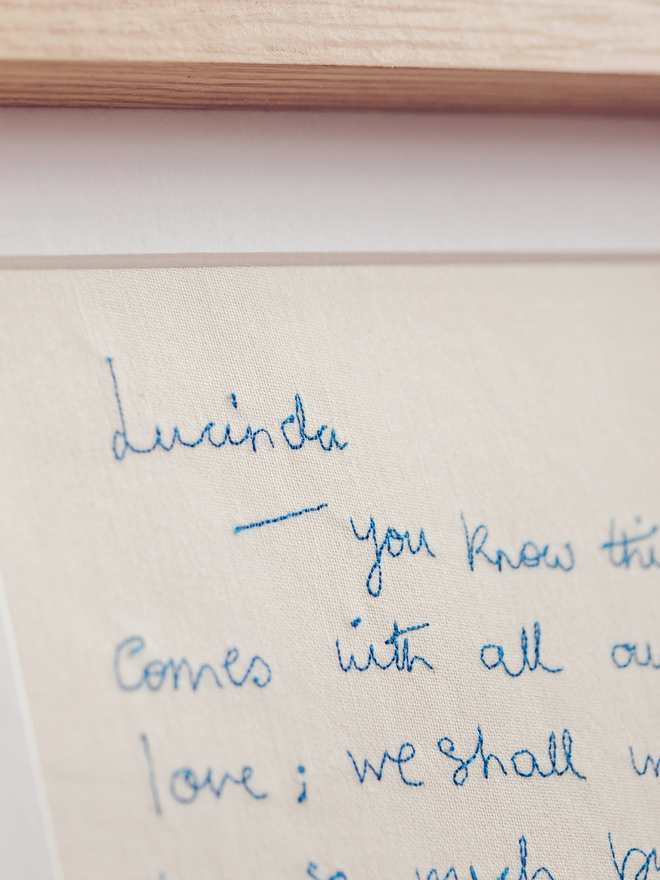 Lucinda
— you know
comes with all
love; we shall
so much